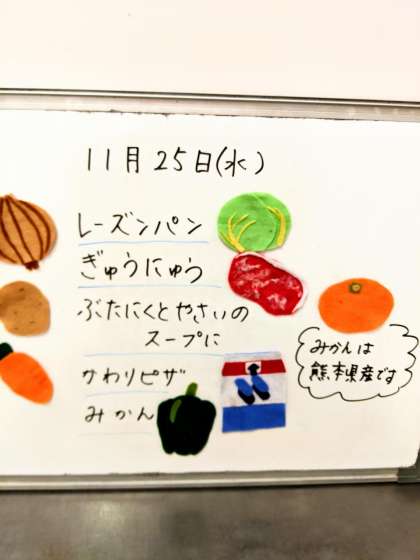 11月25日(水)
レーズンパン
ぎゅうにゅう
ぶたにくとやさいの
スープに
かわりピザ
みかん
みかんは
熊本県産です